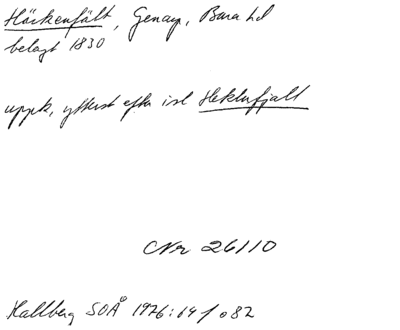 Häckenfält, Genarp, Bara hd
belagt 1830
uppk, ytterst efter isl Heklufjall
CNr 26110
Hallberg SOÅ 1926:14 / o 82